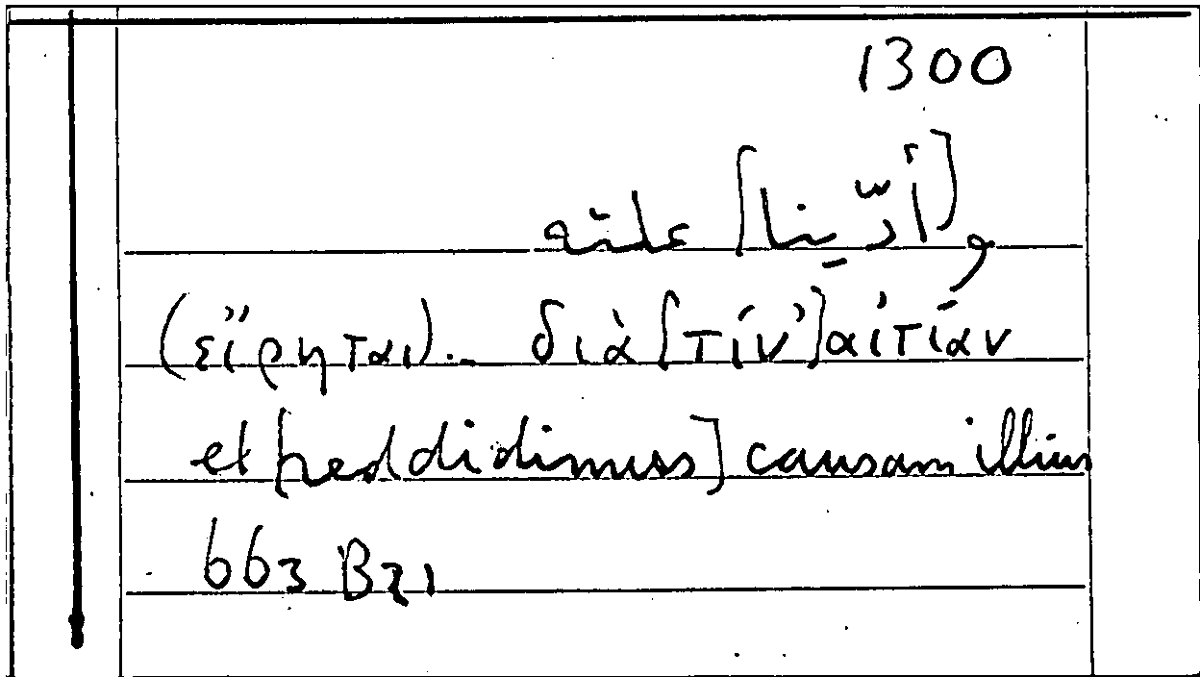 1300
و[أدّينا] علته
(εἴρηται)... διὰ [τίν'] αἰτίαν
et [reddidimus] causam illius
663 B21